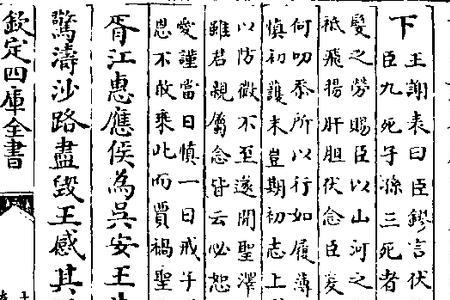 下
王謝表曰臣鏐言伏
臣九死子孫三死者
髮之勞賜臣以山河之
祗飛揚肝胆伏念臣爰
何叨忝所以行如履薄
慎初護末豈期初志上
以防微不至遂開聖澤
雖君親屬念皆云必恕
愛謹當日慎一日戒子
恩不敢乘此而賈禍聖
胥江惠應侯為吳安王
驚濤沙路盡毀王感其
欽定四庫全書